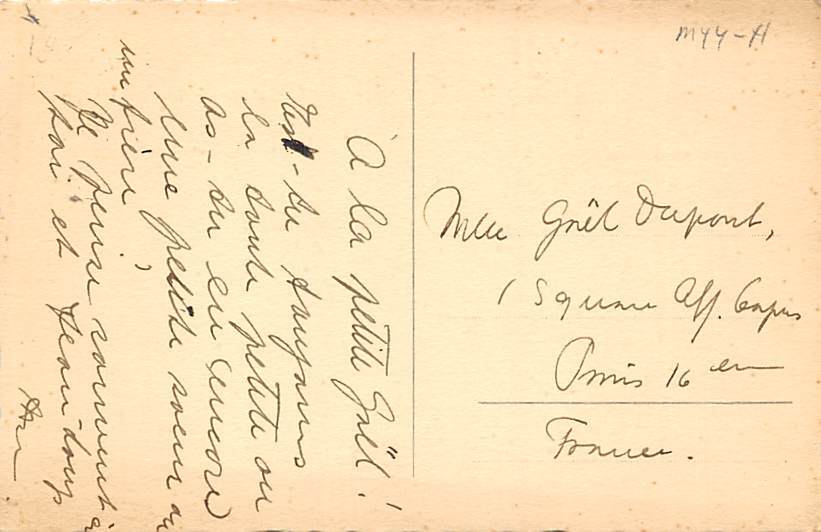 M44-A
À la petite Gaël!
Est-tu toujours
la toute petite ou
as-tu eu encore
une petite soeur ou
un frère?
Je pense souvent à
toi et Jean-Loup
Mlle Gaël Dupont,
1 Square Alf. Capus
Paris 16 em
France.